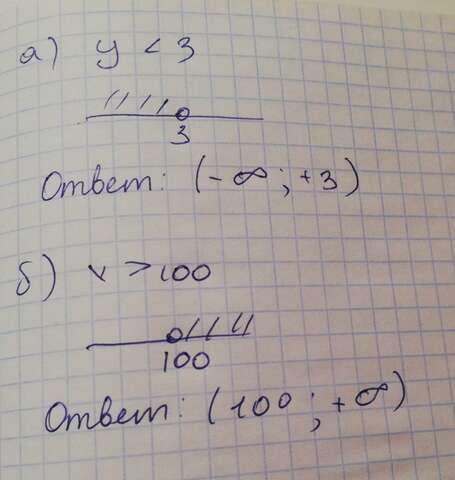 а) y < 3
3
Ответ: (-∞; +3)
б) x > 100
100
Ответ: (100; +∞)